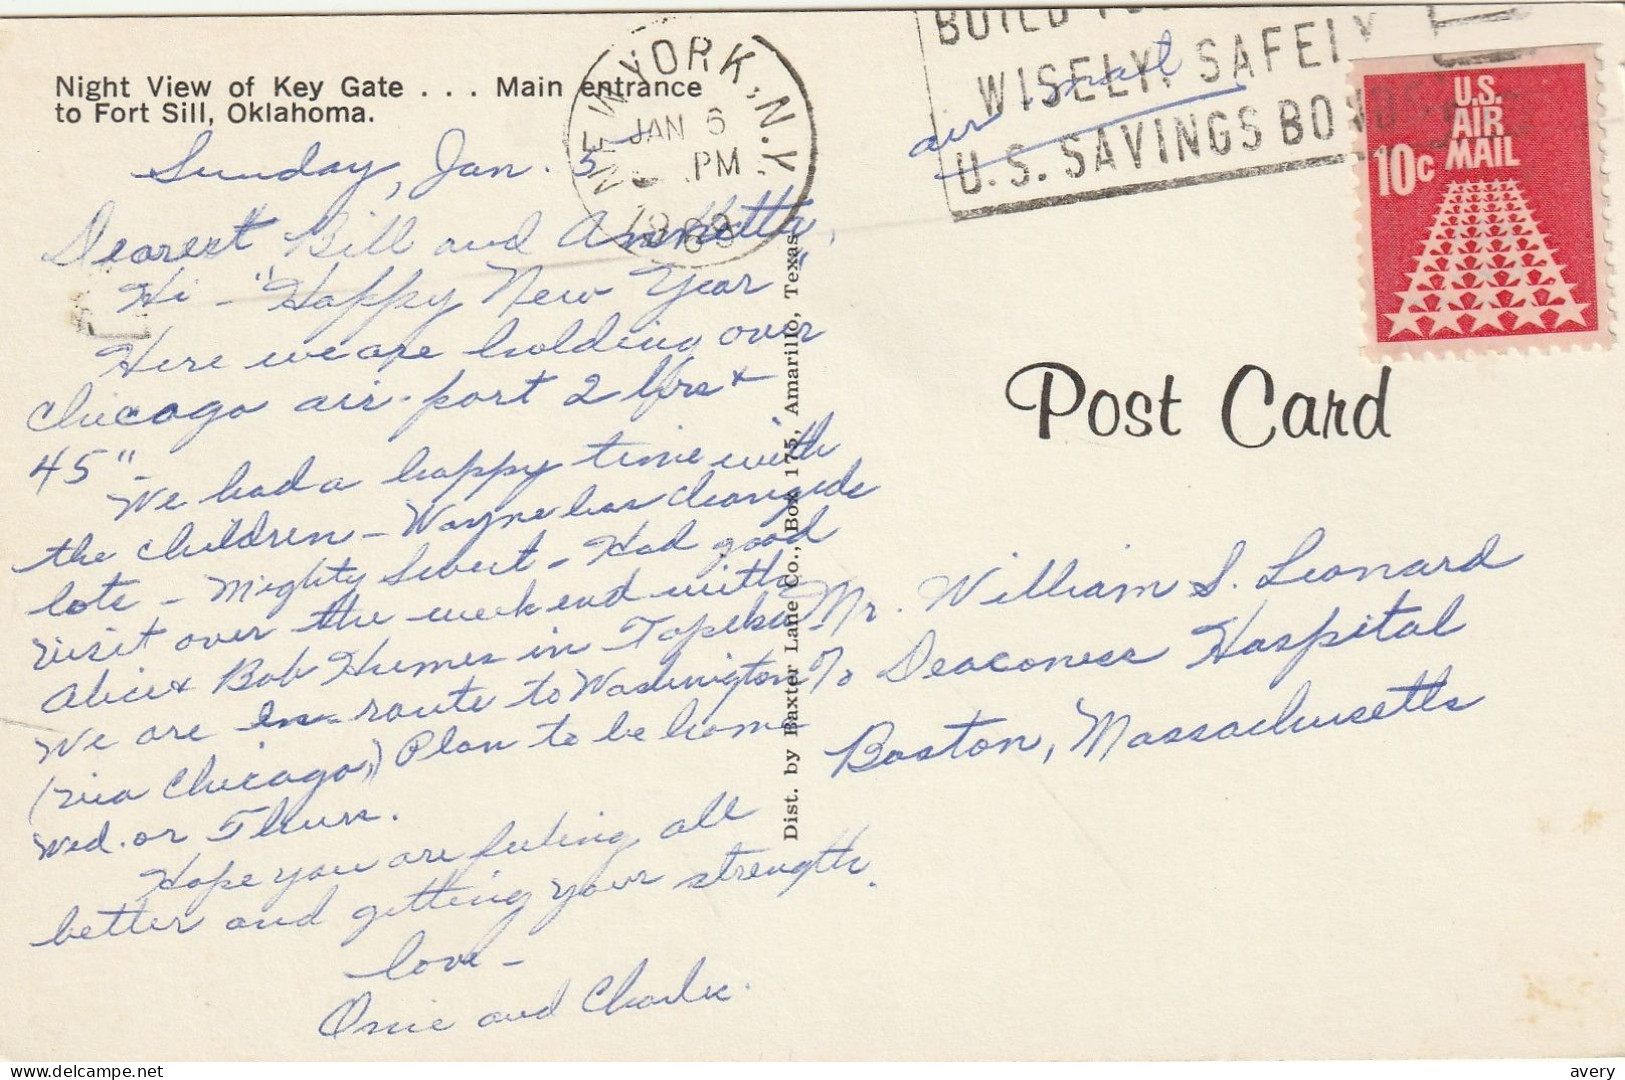 Night View of Key Gate . . . Main entrance
to Fort Sill, Oklahoma.
Sunday, Jan. 5
Dearest Bill and Annetta,
Hi - "Happy New Year"
Here we are holding over
Chicago air-port 2 hrs +
45" -
We had a happy time with
the children - Wayne has changed a
lot - Mighty Sweet - Had good
visit over the weekend with
Alice + Bob Humes in Topeka -
We are en-route to Washington
(via Chicago,) Plan to be home
Wed. or Thurs.
Hope you are feeling all
better and getting your strength.
Love -
and Charlie.
Dist. by Baxter Lane Co., Box 175, Amarillo, Texas
NEW YORK, N.Y.
JAN 6
PM
WISELY, SAFELY
U.S. SAVINGS BONDS
air mail
U.S.
AIR
MAIL
10c
Post Card
Mr. William S. Leonard
% Deaconess Hospital
Boston, Massachusetts
delcampe.net
avery